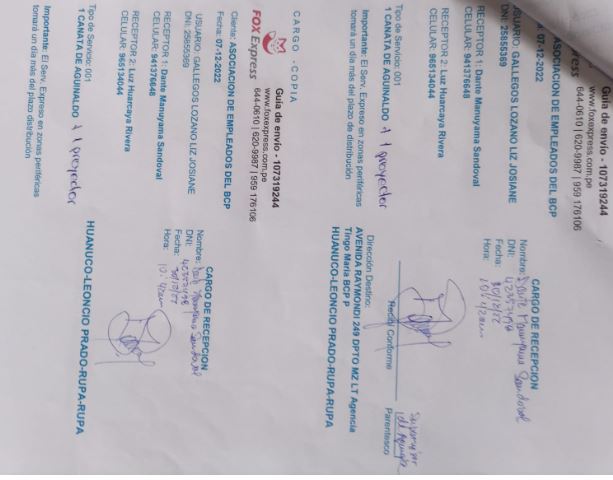 Guía de envío - 107319244
www.foxexpress.com.pe
644-0610 | 620-9987 | 959 176106
ress
ASOCIACION DE EMPLEADOS DEL BCP
07-12-2022
USUARIO: GALLEGOS LOZANO LIZ JOSIANE
DNI: 25855369
RECEPTOR 1: Dante Manuyama Sandoval
CELULAR: 941376648
RECEPTOR 2: Luz Huarcaya Rivera
CELULAR: 965134044
Tipo de Servicio: 001
1 CANATA DE AGUINALDO + 1 proyector
Importante: El Serv. Expreso en zonas periféricas
tomará un día más del plazo de distribución
CARGO DE RECEPCION
Nombre: Dante Manuyama Sandoval
DNI:
Fecha:
Hora:
Recibí Conforme
Parentesco
Dirección Destino:
AVENIDA RAYMONDI 249 DPTO MZ LT Agencia
Tingo Maria BCP P
HUANUCO-LEONCIO PRADO-RUPA-RUPA
CARGO - COPIA
FOX Express
Guía de envío - 107319244
www.foxexpress.com.pe
644-0610 | 620-9987 | 959 176106
Cliente: ASOCIACION DE EMPLEADOS DEL BCP
Fecha: 07-12-2022
USUARIO: GALLEGOS LOZANO LIZ JOSIANE
DNI: 25855369
RECEPTOR 1: Dante Manuyama Sandoval
CELULAR: 941376648
RECEPTOR 2: Luz Huarcaya Rivera
CELULAR: 965134044
Tipo de Servicio: 001
1 CANATA DE AGUINALDO + 1 proyector
Importante: El Serv. Expreso en zonas periféricas
tomará un día más del plazo distribución
CARGO DE RECEPCION
Nombre: Dante Manuyama Sandoval
DNI:
Fecha:
Hora:
HUANUCO-LEONCIO PRADO-RUPA-RUPA